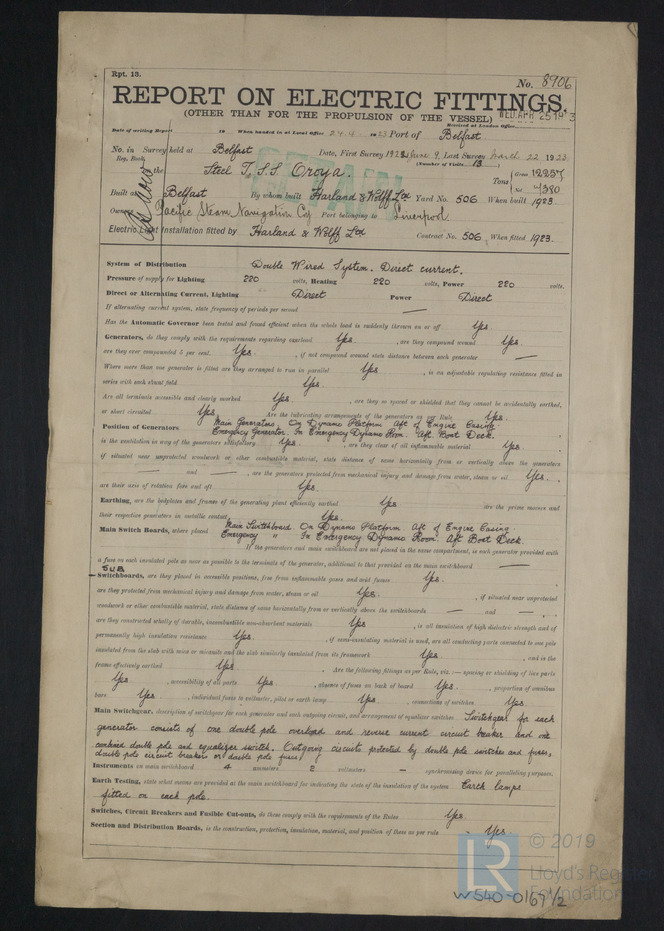 Rpt. 13.
No. 8906
REPORT ON ELECTRIC FITTINGS.
(OTHER THAN FOR THE PROPULSION OF THE VESSEL)
WED. APR. 25 1923
Date of writing Report 19 When handed in at Local Office 24.4.1923 Port of Belfast. Received at London Office
No. in Survey held at Belfast Date, First Survey June 9, Last Survey March 22 1923
Reg. Book. (Number of Visits 13)
on the Steel T.S.S. Oroya. Tons { Gross 12257
Net 7380
Built at Belfast By whom built Harland & Wolff Ltd Yard No. 506 When built 1923.
Owners Pacific Steam Navigation Coy Port belonging to Liverpool
Electric Light Installation fitted by Harland & Wolff Ltd Contract No. 506 When fitted 1923.
RETAIN
System of Distribution Double Wired System. Direct current.
Pressure of supply for Lighting 220 volts, Heating 220 volts, Power 220 volts.
Direct or Alternating Current, Lighting Direct Power Direct
If alternating current system, state frequency of periods per second —
Has the Automatic Governor been tested and found efficient when the whole load is suddenly thrown on or off Yes.
Generators, do they comply with the requirements regarding overload Yes, are they compound wound Yes.
are they over compounded 5 per cent. Yes., if not compound wound state distance between each generator —
Where more than one generator is fitted are they arranged to run in parallel Yes, is an adjustable regulating resistance fitted in
series with each shunt field Yes.
Are all terminals accessible and clearly marked Yes., are they so spaced or shielded that they cannot be accidentally earthed,
or short circuited Yes. Are the lubricating arrangements of the generators as per Rule Yes.
Position of Generators Main Generators, On Dynamo Platform Aft of Engine Casing
Emergency Generator. In Emergency Dynamo Room. Aft. Boat Deck.
is the ventilation in way of the generators satisfactory Yes., are they clear of all inflammable material Yes.,
if situated near unprotected woodwork or other combustible material, state distance of same horizontally from or vertically above the generators
— and —, are the generators protected from mechanical injury and damage from water, steam or oil Yes.,
are their axis of rotation fore and aft Yes.
Earthing, are the bedplates and frames of the generating plant efficiently earthed Yes. are the prime movers and
their respective generators in metallic contact Yes.
Main Switch Boards, where placed Main Switchboard On Dynamo Platform Aft of Engine Casing.
Emergency " In Emergency Dynamo Room. Aft Boat Deck.
If the generators and main switchboard are not placed in the same compartment, is each generator provided with
a fuse on each insulated pole as near as possible to the terminals of the generator, additional to that provided on the main switchboard —
SUB
Switchboards, are they placed in accessible positions, free from inflammable gases and acid fumes Yes.,
are they protected from mechanical injury and damage from water, steam or oil Yes., if situated near unprotected
woodwork or other combustible material, state distance of same horizontally from or vertically above the switchboards — and —,
are they constructed wholly of durable, incombustible non-absorbent materials Yes, is all insulation of high dielectric strength and of
permanently high insulation resistance Yes., if semi-insulating material is used, are all conducting parts connected to one pole
insulated from the slab with mica or micanite and the slab similarly insulated from its framework Yes., and is the
frame effectively earthed Yes. Are the following fittings as per Rule, viz.:— spacing or shielding of live parts
Yes., accessibility of all parts Yes., absence of fuses on back of board Yes., proportion of omnibus
bars Yes., individual fuses to voltmeter, pilot or earth lamp Yes, connections of switches Yes.
Main Switchgear, description of switchgear for each generator and each outgoing circuit, and arrangement of equaliser switches Switchgear for each
generator consists of one double pole overload and reverse current circuit breaker and one
combined double pole and equalizer switch. Outgoing circuits protected by double pole switches and fuses,
double pole circuit breakers or double pole fuses
Instruments on main switchboard 4 ammeters 2 voltmeters — synchronising device for paralleling purposes.
Earth Testing, state what means are provided at the main switchboard for indicating the state of the insulation of the system Earth lamps
fitted on each pole.
Switches, Circuit Breakers and Fusible Cut-outs, do these comply with the requirements of the Rules Yes.
Section and Distribution Boards, is the construction, protection, insulation, material, and position of these as per rule Yes.
© 2019
LR Lloyd's Register
Foundation
W540-0167 1/2